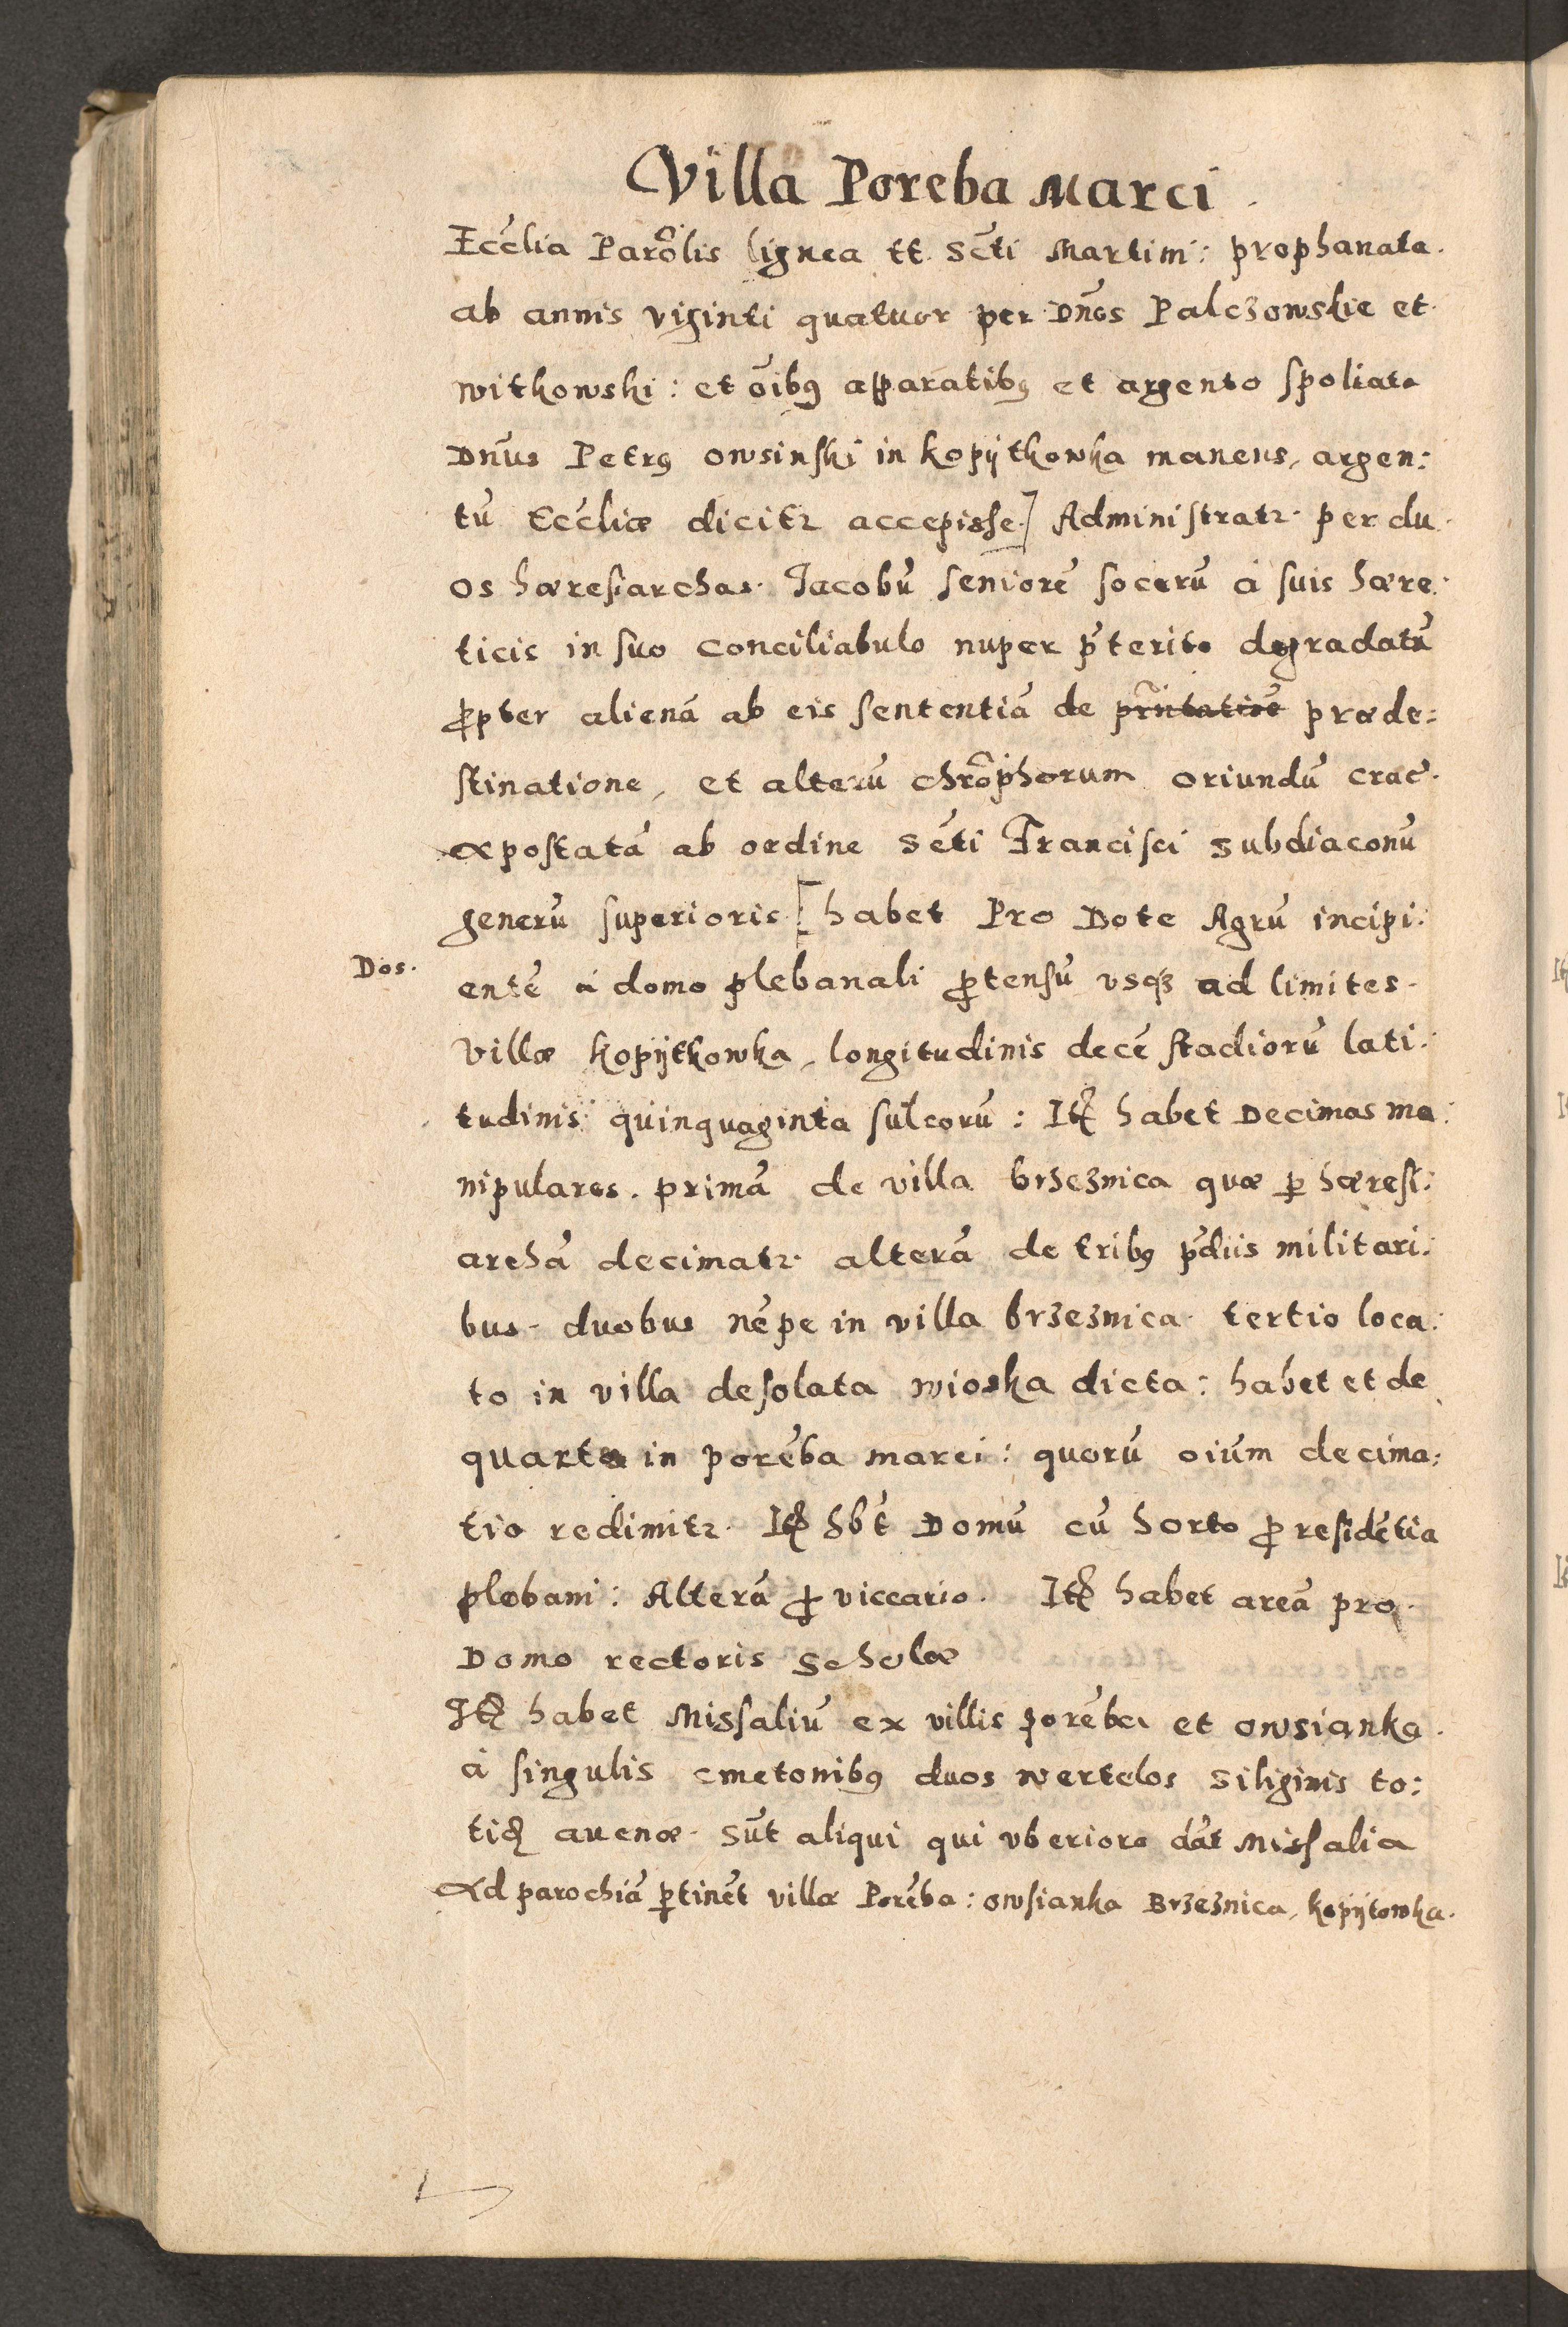 Villa Poreba Marci.
Ecc̃lia Parõlis lignea tt. Sc̃ti Martini: prophanata.
ab annis viginti quatuor per Dños Palczowskie et
witkowski: et õibꝰ apparatibꝰ et argento spoliata
Dñus Petrꝰ owsinski in kopijtkowka manens, argen:
tũ Ecc̃liæ dicitꝛ accepisse.] Administratꝛ. per du
os hæresiarchas. Jacobũ seniorẽ socerũ à suis hære:
ticis in suo conciliabulo nuper p̃terito degradatũ
ꝓpter alienã ab eis sententiã de præde:
stinatione, et alterũ chrõphorum oriundũ crac̃.
apostatã ab ordine Sc̃ti Francisci Subdiaconũ
generũ superioris. [habet Pro Dote Agrũ incipi:
Dos.
entẽ à domo plebanali ꝓtensũ vsqꝫ ad limites.
villæ kopijtkowka, longitudinis decẽ stadiorũ lati:
tudinis quinquaginta sulcorũ: Itẽ habet Decimas ma:
nipulares. primã de villa brzeznica quæ ꝑ hæresi:
archã decimatꝛ. alterã de tribꝰ p̃diis militari:
bus. duobus nẽpe in villa brzeznica. tertio loca:
to in villa desolata wioska dicta: habet et de
quarto in porẽba marci: quorũ oiũm decima:
tio redimitꝛ. Itẽ hb̃t Domũ cũ horto ꝓ residẽtia
plebani: Alterã ꝓ viccario. Itẽ habet areã pro
Domo rectoris Scholæ
Itẽ habet Missaliũ ex villis porẽba et owsianka.
à singulis cmetonibꝰ duos wertelos siliginis to:
tiđ auenæ. Sũt aliqui qui vberiora dãt Missalia
Ad parochiã ꝑtinẽt villæ Porẽba: owsianka Brzeznica, kopijtowka.